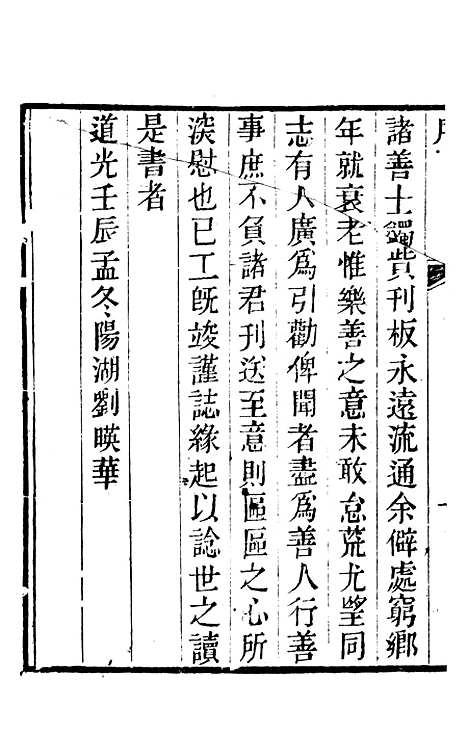 諸善士蠲貲刊板永遠流通余僻處窮鄉
年就衰老惟樂善之意未敢怠荒尤望同
志有人廣爲引勸俾聞者盡爲善人行善
事庶不負諸君刊送至意則區區之心所
深慰也已工旣竣謹誌緣起以諗世之讀
是書者
道光壬辰孟冬陽湖劉暎華